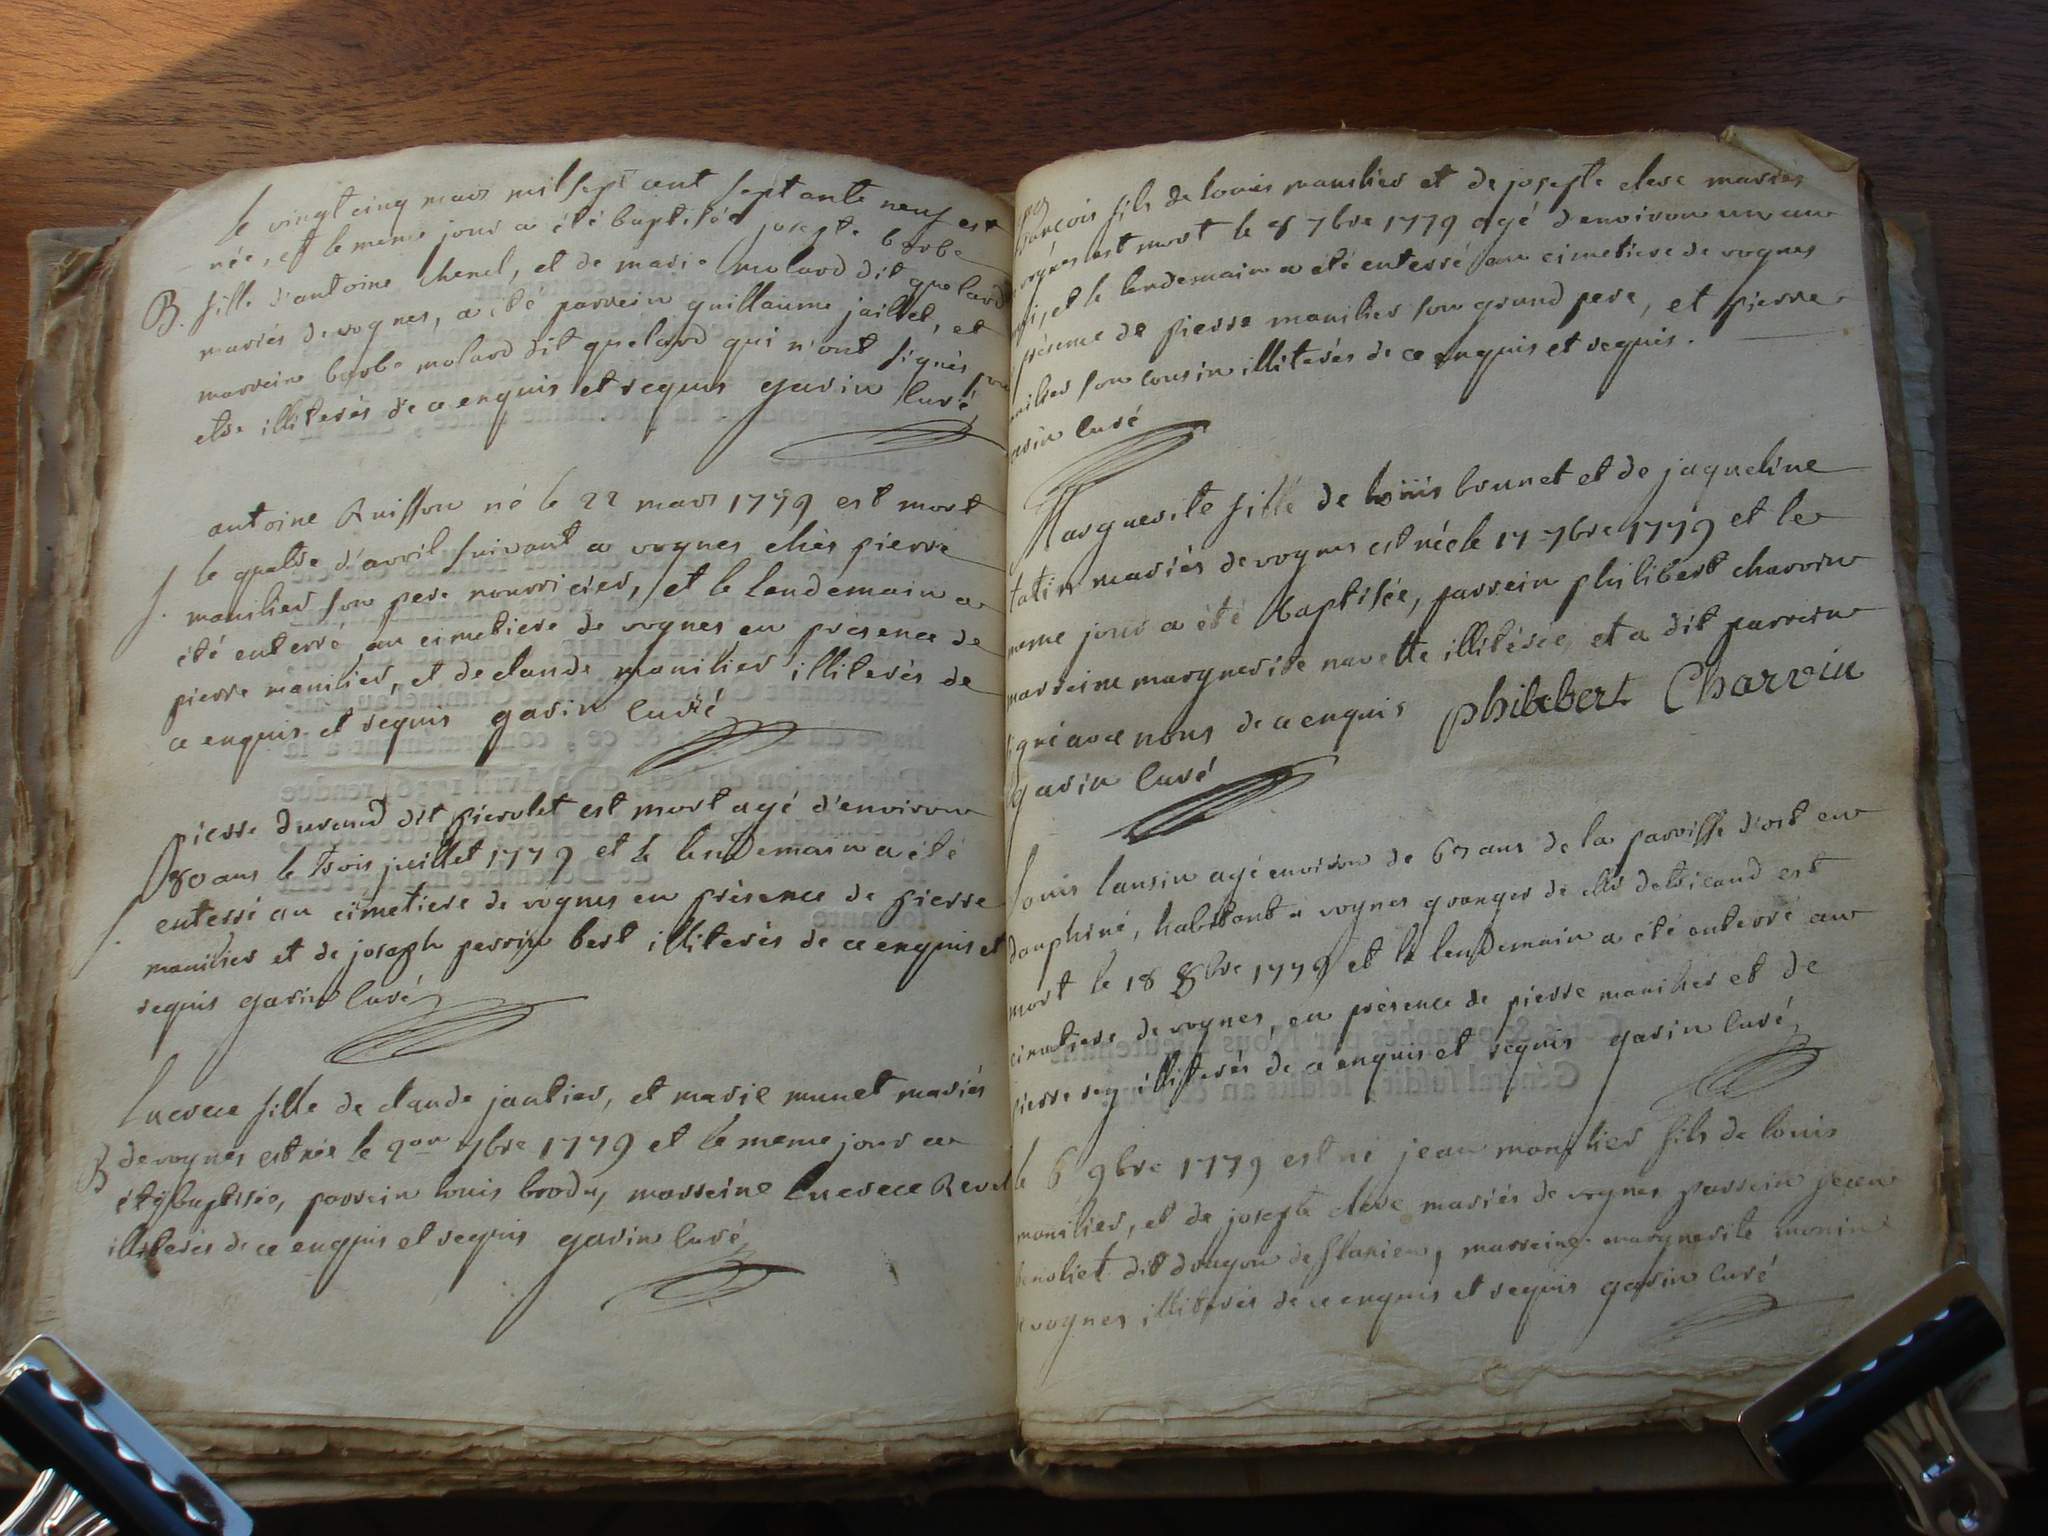 le vingt cinq mars mil sept cent septante neuf est
née, et le meme jour a été baptisée josepte barbe
B. fille d'antoine Chenel, et de marie molard dit quelard
mariés de vognes, a été parrein guillaume jaillet, et
marreine barbe molard dit quelard qui n'ont signés pour
etre illiterés de ce enquis et requis garin Curé
antoine Ruisson né le 22 mars 1779 est mort
S. le quatre d'avril suivant a vognes chés pierre
manilier son pere nourricier, et le lendemain a
été enterré au cimetiere de vognes en présence de
pierre manilier, et de claude manilier illiterés de
ce enquis et requis garin Curé
pierre durand dit pierolet est mort agé d'environ
80 ans le trois juillet 1779 et le lendemain a été
S. enterré au cimetiere de vognes en présence de pierre
manilier et de joseph perrin bert illiterés de ce enquis et
requis garin Curé
Lucrece fille de claude jantier, et marie munet mariés
B de vognes est née le 7bre 1779 et le meme jour a
été baptisée, parrein louis brodu, marreine Lucrece Revel
illiterés de ce enquis et requis garin Curé
françois fils de louis manilier et de josepte clere mariés
vognes est mort le 8 7bre 1779 agé d'environ un an
et le lendemain a été enterré au cimetiere de vognes
présence de pierre manilier son grand pere, et pierre
manilier son cousin illiterés de ce enquis et requis.
garin Curé
Marguerite fille de louis brunet et de jaqueline
tatin mariés de vognes est née le 17 7bre 1779 et le
meme jour a été baptisée, parrein philibert charvin
marreine marguerite navette illiterée, et a dit parrein
signé avec nous de ce enquis philibert Charvin
garin Curé
Louis lansin agé environ de 60 ans de la parroisse d'ost en
dauphiné, habitant a vognes granger de est
mort le 18 8bre 1779 et le lendemain a été enterré au
cimetiere de vognes, en présence de pierre manilier et de
pierre rey illiterés de ce enquis et requis garin Curé
le 6 9bre 1779 est né jean manilier fils de louis
manilier, et de josepte clere mariés de vognes parrein jean
benoliet dit dragon de flanieu, marreine marguerite monin
de vognes illiterés de ce enquis et requis garin Curé